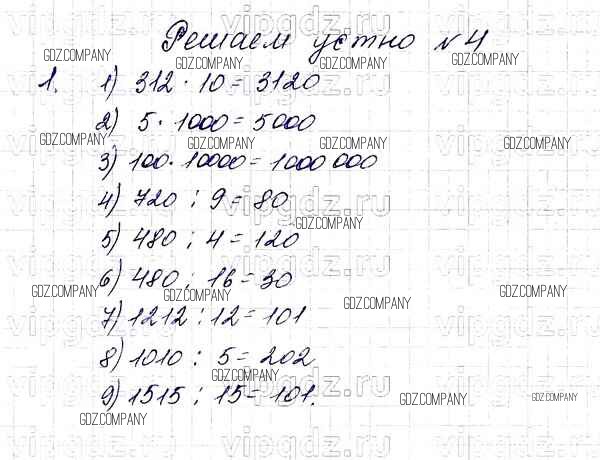 Решаем устно №4
1. 1) 312 · 10 = 3120
2) 5 · 1000 = 5000
3) 100 · 10000 = 1000 000
4) 720 : 9 = 80
5) 480 : 4 = 120
6) 480 : 16 = 30
7) 1212 : 12 = 101
8) 1010 : 5 = 202
9) 1515 : 15 = 101.
GDZ.COMPANY
vipgdz.ru